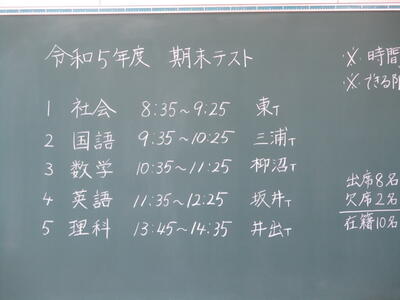 令和5年度 期末テスト
※ 時間
※ できる限
1 社会 8:35~9:25 東T
2 国語 9:35~10:25 三浦T
3 数学 10:35~11:25 柳沼T
4 英語 11:35~12:25 坂井T
5 理科 13:45~14:35 井出T
出席8名
欠席2名
在籍10名